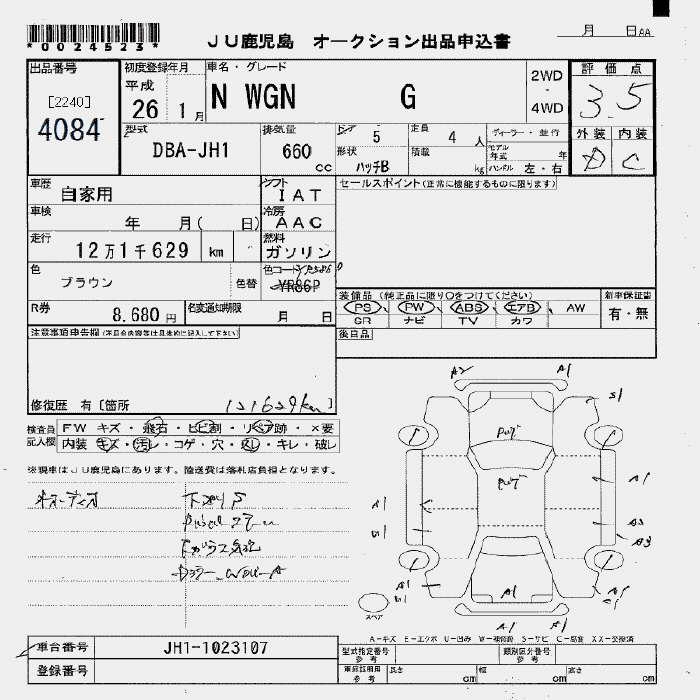 *0024523*
JU鹿児島 オークション出品申込書
月 日AA
出品番号
[2240]
4084
初度登録年月
平成
26 1月
車名・グレード
N WGN G
2WD
・
4WD
評価点
3.5
外装 内装
D C
型式
DBA-JH1
排気量
660
cc
ドア 5
形状 ハッチB
定員 4 人
積載 kg
ディーラー・並行
モデル年式 年
ハンドル 左・右
車歴 自家用
シフト IAT
セールスポイント(正常に機能するものに限ります)
車検 年 月( 日)
冷房 AAC
走行 12万1千629 km
燃料 ガソリン
色 ブラウン 色替
色コード YR586P
YR86P
R券 8,680円
名変通知期限 月 日
装備品 (純正品に限り○をつけてください)
PS PW ABS エアB AW
SR ナビ TV カワ
新車保証書
有・無
後日品
注意事項申告欄(不具合内容等は具体的に記入して下さい)
修復歴 有〔箇所 121629km〕
検査員記入欄
FW キズ・飛石・ヒビ割・リペア跡・×要
内装 キズ・汚レ・コゲ・穴・スレ・キレ・破レ
※現車はJU鹿児島にあります。陸送費は落札店負担となります。
オーディオ
A2 A1
S1
A1
A1
A1
A1
スペア
A-キズ E-エクボ U-凹み W-補修跡 S-サビ C-腐食 XX-交換済
車台番号 JH1-1023107
登録番号
型式指定番号 参考
類別区分番号 参考
車庫証明用 参考
長さ cm 幅 cm 高さ cm